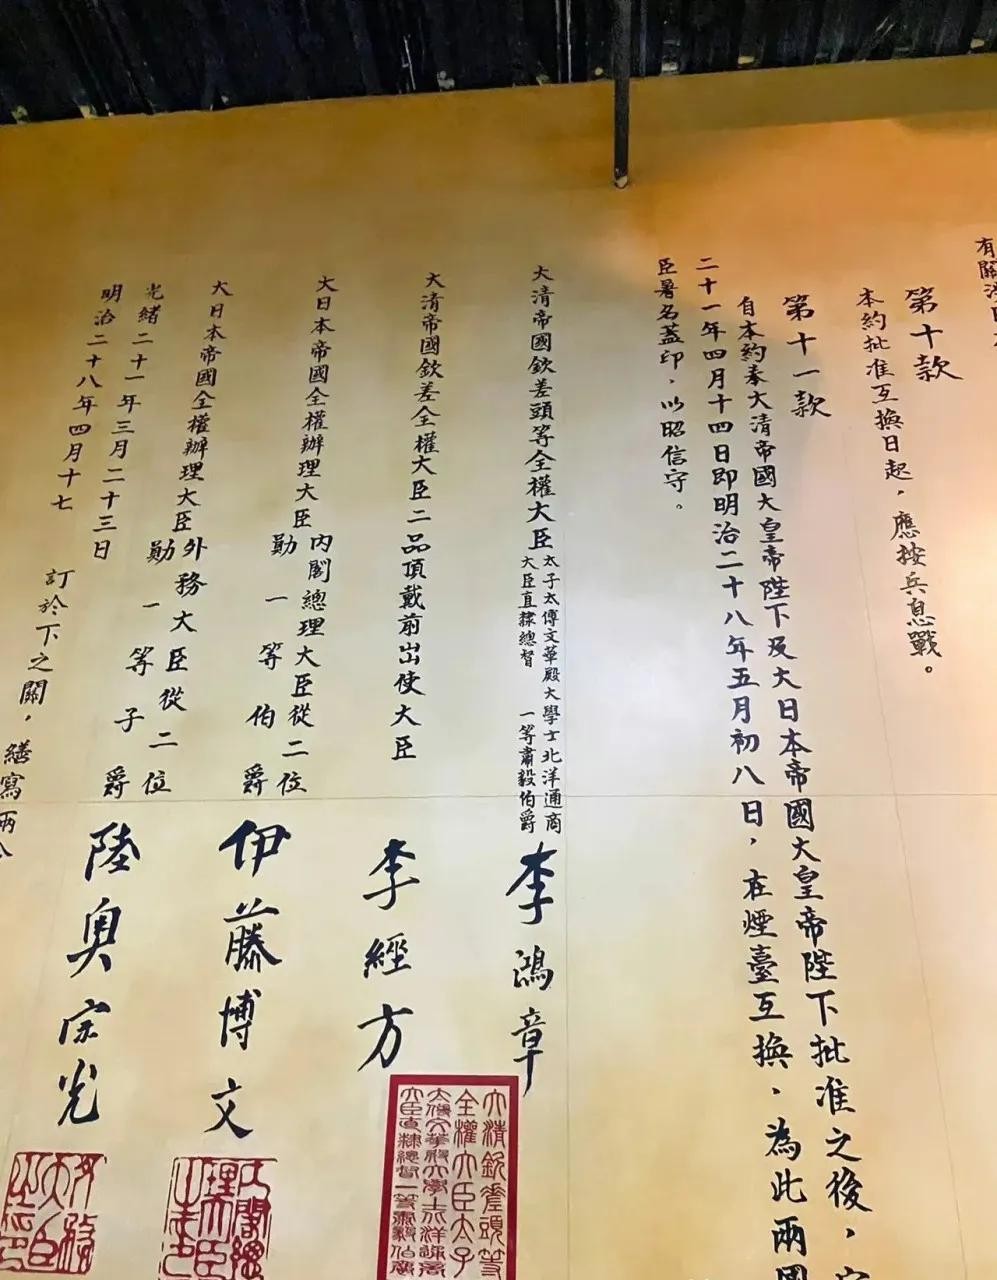 有關
第十款
本約批准互換日起，應按兵息戰。
第十一款
自本約奉大清帝國大皇帝陛下及大日本帝國大皇帝陛下批准之後，
二十一年四月十四日即明治二十八年五月初八日，在煙臺互換，為此兩國
臣署名蓋印，以昭信守。
大清帝國欽差頭等全權大臣
太子太傅文華殿大學士北洋通商
大臣直隸總督 一等肅毅伯爵
李鴻章
大清帝國欽差全權大臣二品頂戴前出使大臣
李經方
大日本帝國全權辦理大臣
內閣總理大臣從二位
勛一等伯爵
伊藤博文
大日本帝國全權辦理大臣
外務大臣從二位
勛一等子爵
陸奧宗光
光緒二十一年三月二十三日
明治二十八年四月十七
訂於下之關，繕寫兩
大清欽差頭等
全權大臣太子
太傅文華殿大學士北洋通商
大臣直隸總督一等肅毅伯爵
內閣總
理大臣
之印
外務
大臣
之印